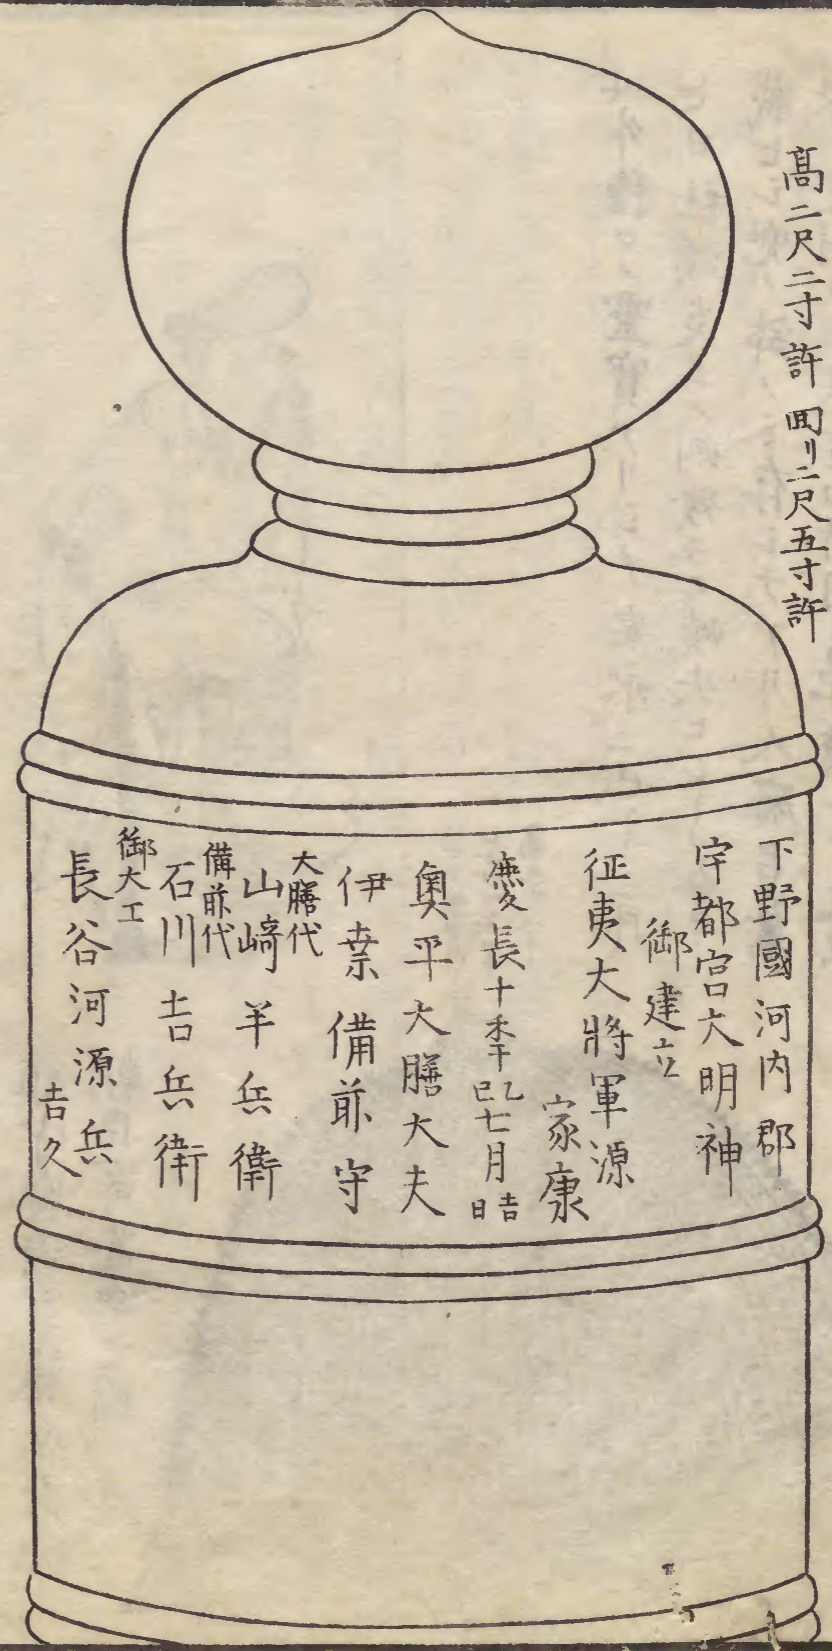 髙二尺二寸許 囘リ二尺五寸許
下野國河内郡
宇都宮大明神
御建立
征夷大將軍源
家康
慶長十季乙巳七月吉日
奧平大膳大夫
伊奈備前守
大膳代
山﨑半兵衛
備前代
石川吉兵衛
御大工
長谷河源兵
吉久